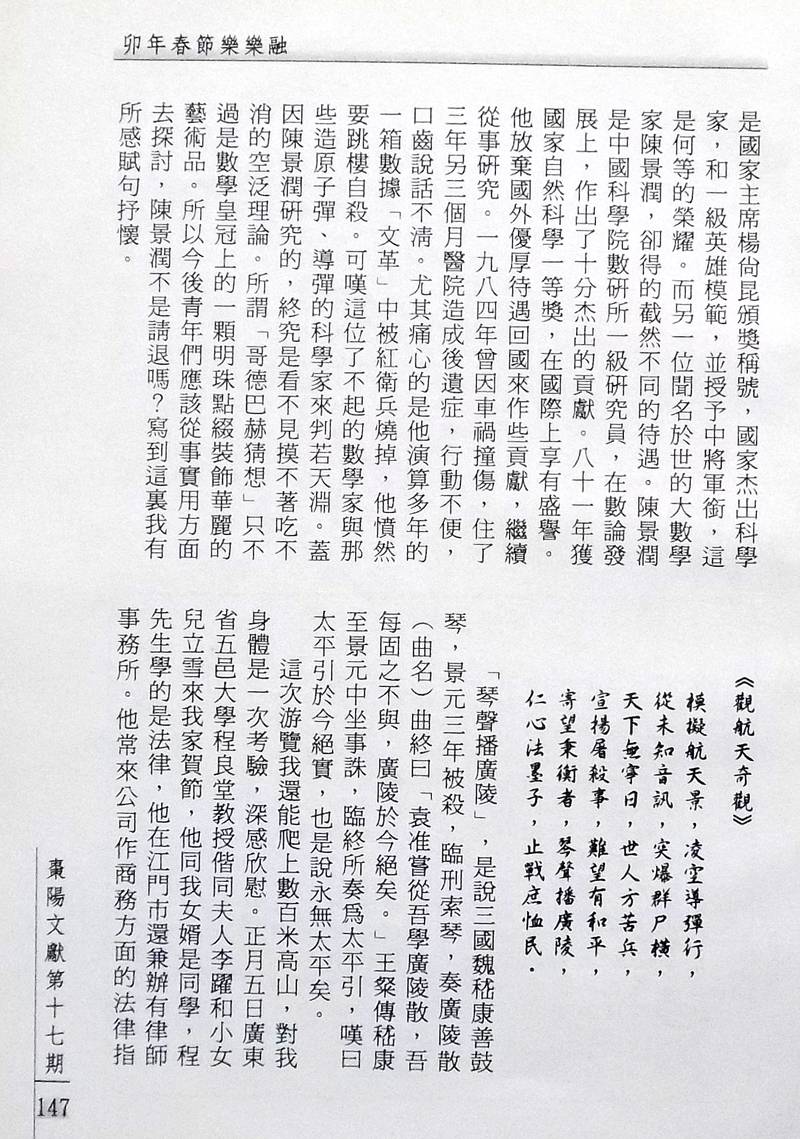 卯年春節樂樂融
是國家主席楊尙昆頒獎稱號，國家杰出科學
家，和一級英雄模範，並授予中將軍銜，這
是何等的榮耀。而另一位聞名於世的大數學
家陳景潤，卻得的截然不同的待遇。陳景潤
是中國科學院數硏所一級硏究員，在數論發
展上，作出了十分杰出的貢獻。八十一年獲
國家自然科學一等獎，在國際上享有盛譽。
他放棄國外優厚待遇回國來作些貢獻，繼續
從事硏究。一九八四年曾因車禍撞傷，住了
三年另三個月醫院造成後遺症，行動不便，
口齒說話不淸。尤其痛心的是他演算多年的
一箱數據「文革」中被紅衛兵燒掉，他憤然
要跳樓自殺。可嘆這位了不起的數學家與那
些造原子彈、導彈的科學家來判若天淵。蓋
因陳景潤硏究的，終究是看不見摸不著吃不
消的空泛理論。所謂「哥德巴赫猜想」只不
過是數學皇冠上的一顆明珠點綴裝飾華麗的
藝術品。所以今後青年們應該從事實用方面
去探討，陳景潤不是請退嗎？寫到這裏我有
所感賦句抒懷。
《觀航天奇觀》
模擬航天景，凌空導彈行，
從未知音訊，突爆群尸橫，
天下無寧日，世人方苦兵，
宣揚屠殺事，難望有和平，
寄望秉衡者，琴聲播廣陵，
仁心法墨子，止戰庶恤民。
「琴聲播廣陵」，是說三國魏嵇康善鼓
琴，景元三年被殺，臨刑索琴，奏廣陵散
（曲名）曲終曰「袁准嘗從吾學廣陵散，吾
每固之不與，廣陵於今絕矣。」王粲傳嵇康
至景元中坐事誅，臨終所奏爲太平引，嘆曰
太平引於今絕實，也是說永無太平矣。
這次游覽我還能爬上數百米高山，對我
身體是一次考驗，深感欣慰。正月五日廣東
省五邑大學程良堂教授偕同夫人李躍和小女
兒立雪來我家賀節，他同我女婿是同學，程
先生學的是法律，他在江門市還兼辦有律師
事務所。他常來公司作商務方面的法律指
棗陽文獻第十七期
147